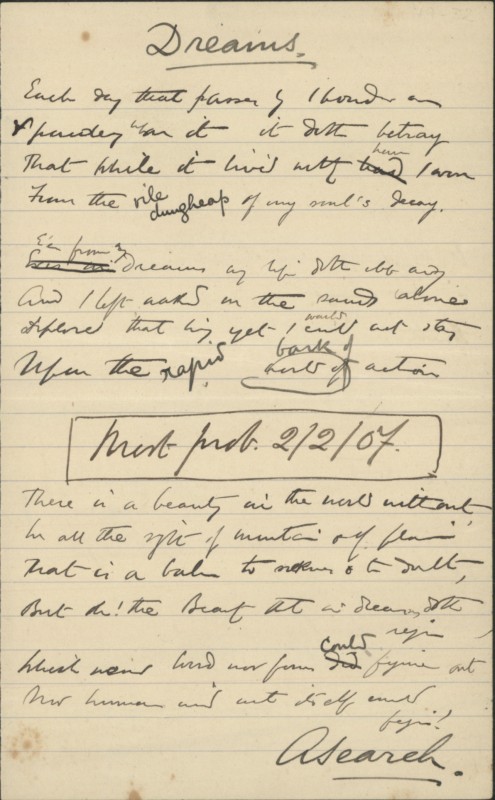 Dreams.
Each day that passes by I ponder on
pondering on it it doth betray
That while it lived itself had have I won
From the vile dungheap of my soul's decay.
E'en from my dreams my life doth ebb away
And I left naked on the sands alone
Deplored that long yet I could would not stay
Upon the rapid bark of world of action
Most prob. 2/2/07.
There is a beauty in the world without
In all the sight of mountain of plain
That is a balm to to doubt,
But oh! the Beauty that in dreams doth
reign
Which word nor form did could figure out
Nor human mind not itself could
feign!
A Search.